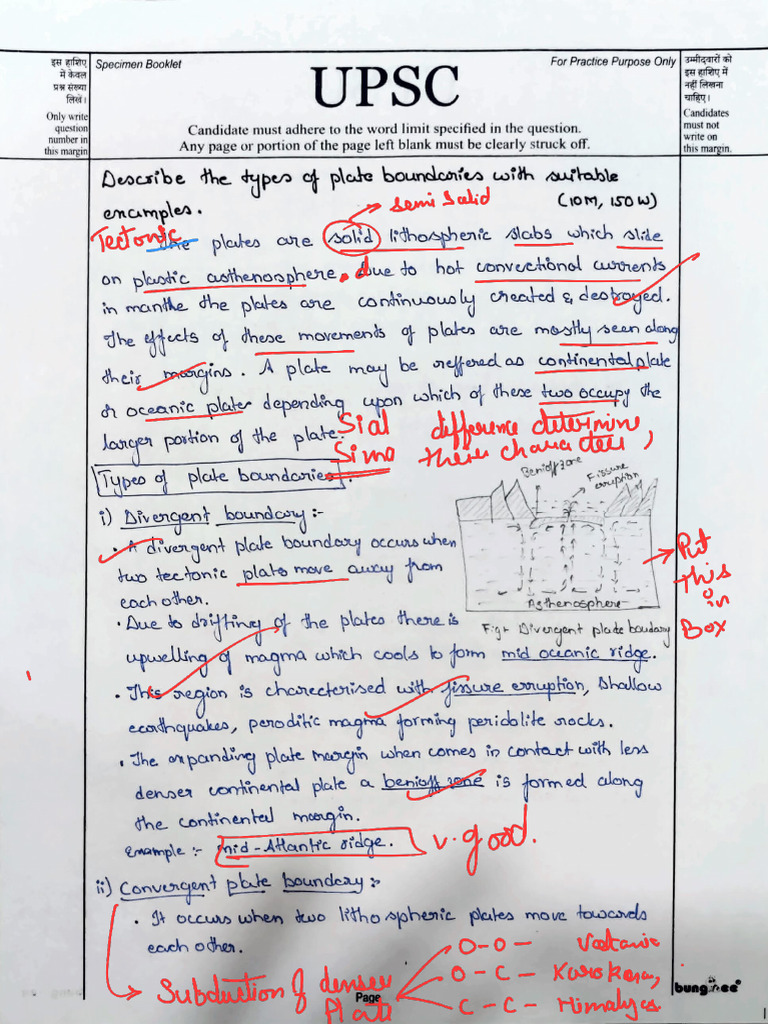 इस हाशिए
में केवल
प्रश्न संख्या
लिखें।
Only write
question
number in
this margin
Specimen Booklet
For Practice Purpose Only
UPSC
Candidate must adhere to the word limit specified in the question.
Any page or portion of the page left blank must be clearly struck off.
उम्मीदवारों को
इस हाशिए में
नहीं लिखना
चाहिए।
Candidates
must not
write on
this margin.
Describe the types of plate boundaries with suitable
examples. (10M, 150W)
semi Solid
Tectonic
The plates are solid lithospheric slabs which slide
on plastic asthenosphere. due to hot convectional currents
in manthe the plates are continuously created & destroyed.
The effects of these movements of plates are mostly seen along
their margins. A plate may be reffered as continental plate
or oceanic plate depending upon which of these two occupy the
larger portion of the plate.
Sial difference determine
Sima there characters,
Types of plate boundaries.
Benioff zone
Fissure
erruption
i) Divergent boundary :-
• A divergent plate boundary occurs when
two tectonic plates move away from
each other.
Asthenosphere
Fig:- Divergent plate boudary
Put
this
in
Box
• Due to drifting of the plates there is
upwelling of magma which cools to form mid oceanic ridge.
• This region is charecterised with fissure erruption, shallow
earthquakes, peroditic magma forming peridolite rocks.
• The expanding plate margin when comes in contact with less
denser continental plate a benioff zone is formed along
the continental margin.
Example :- mid-Atlantic ridge.
v. good.
ii) Convergent plate boundary :-
• It occurs when two lithospheric plates move towards
each other.
Subduction of denser
Plate
O-O-
O-C-
C-C- Himalyas
Page